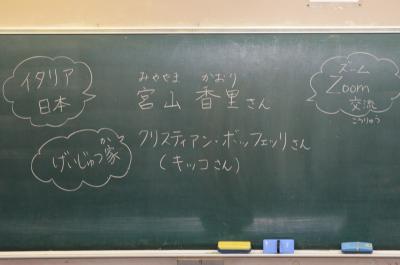 イタリア
日本
みややま かおり
宮山 香里さん
ズーム
Zoom
交流
こうりゅう
げいじゅつ家
か
クリスティアン・ボッフェッリさん
(キッコさん)